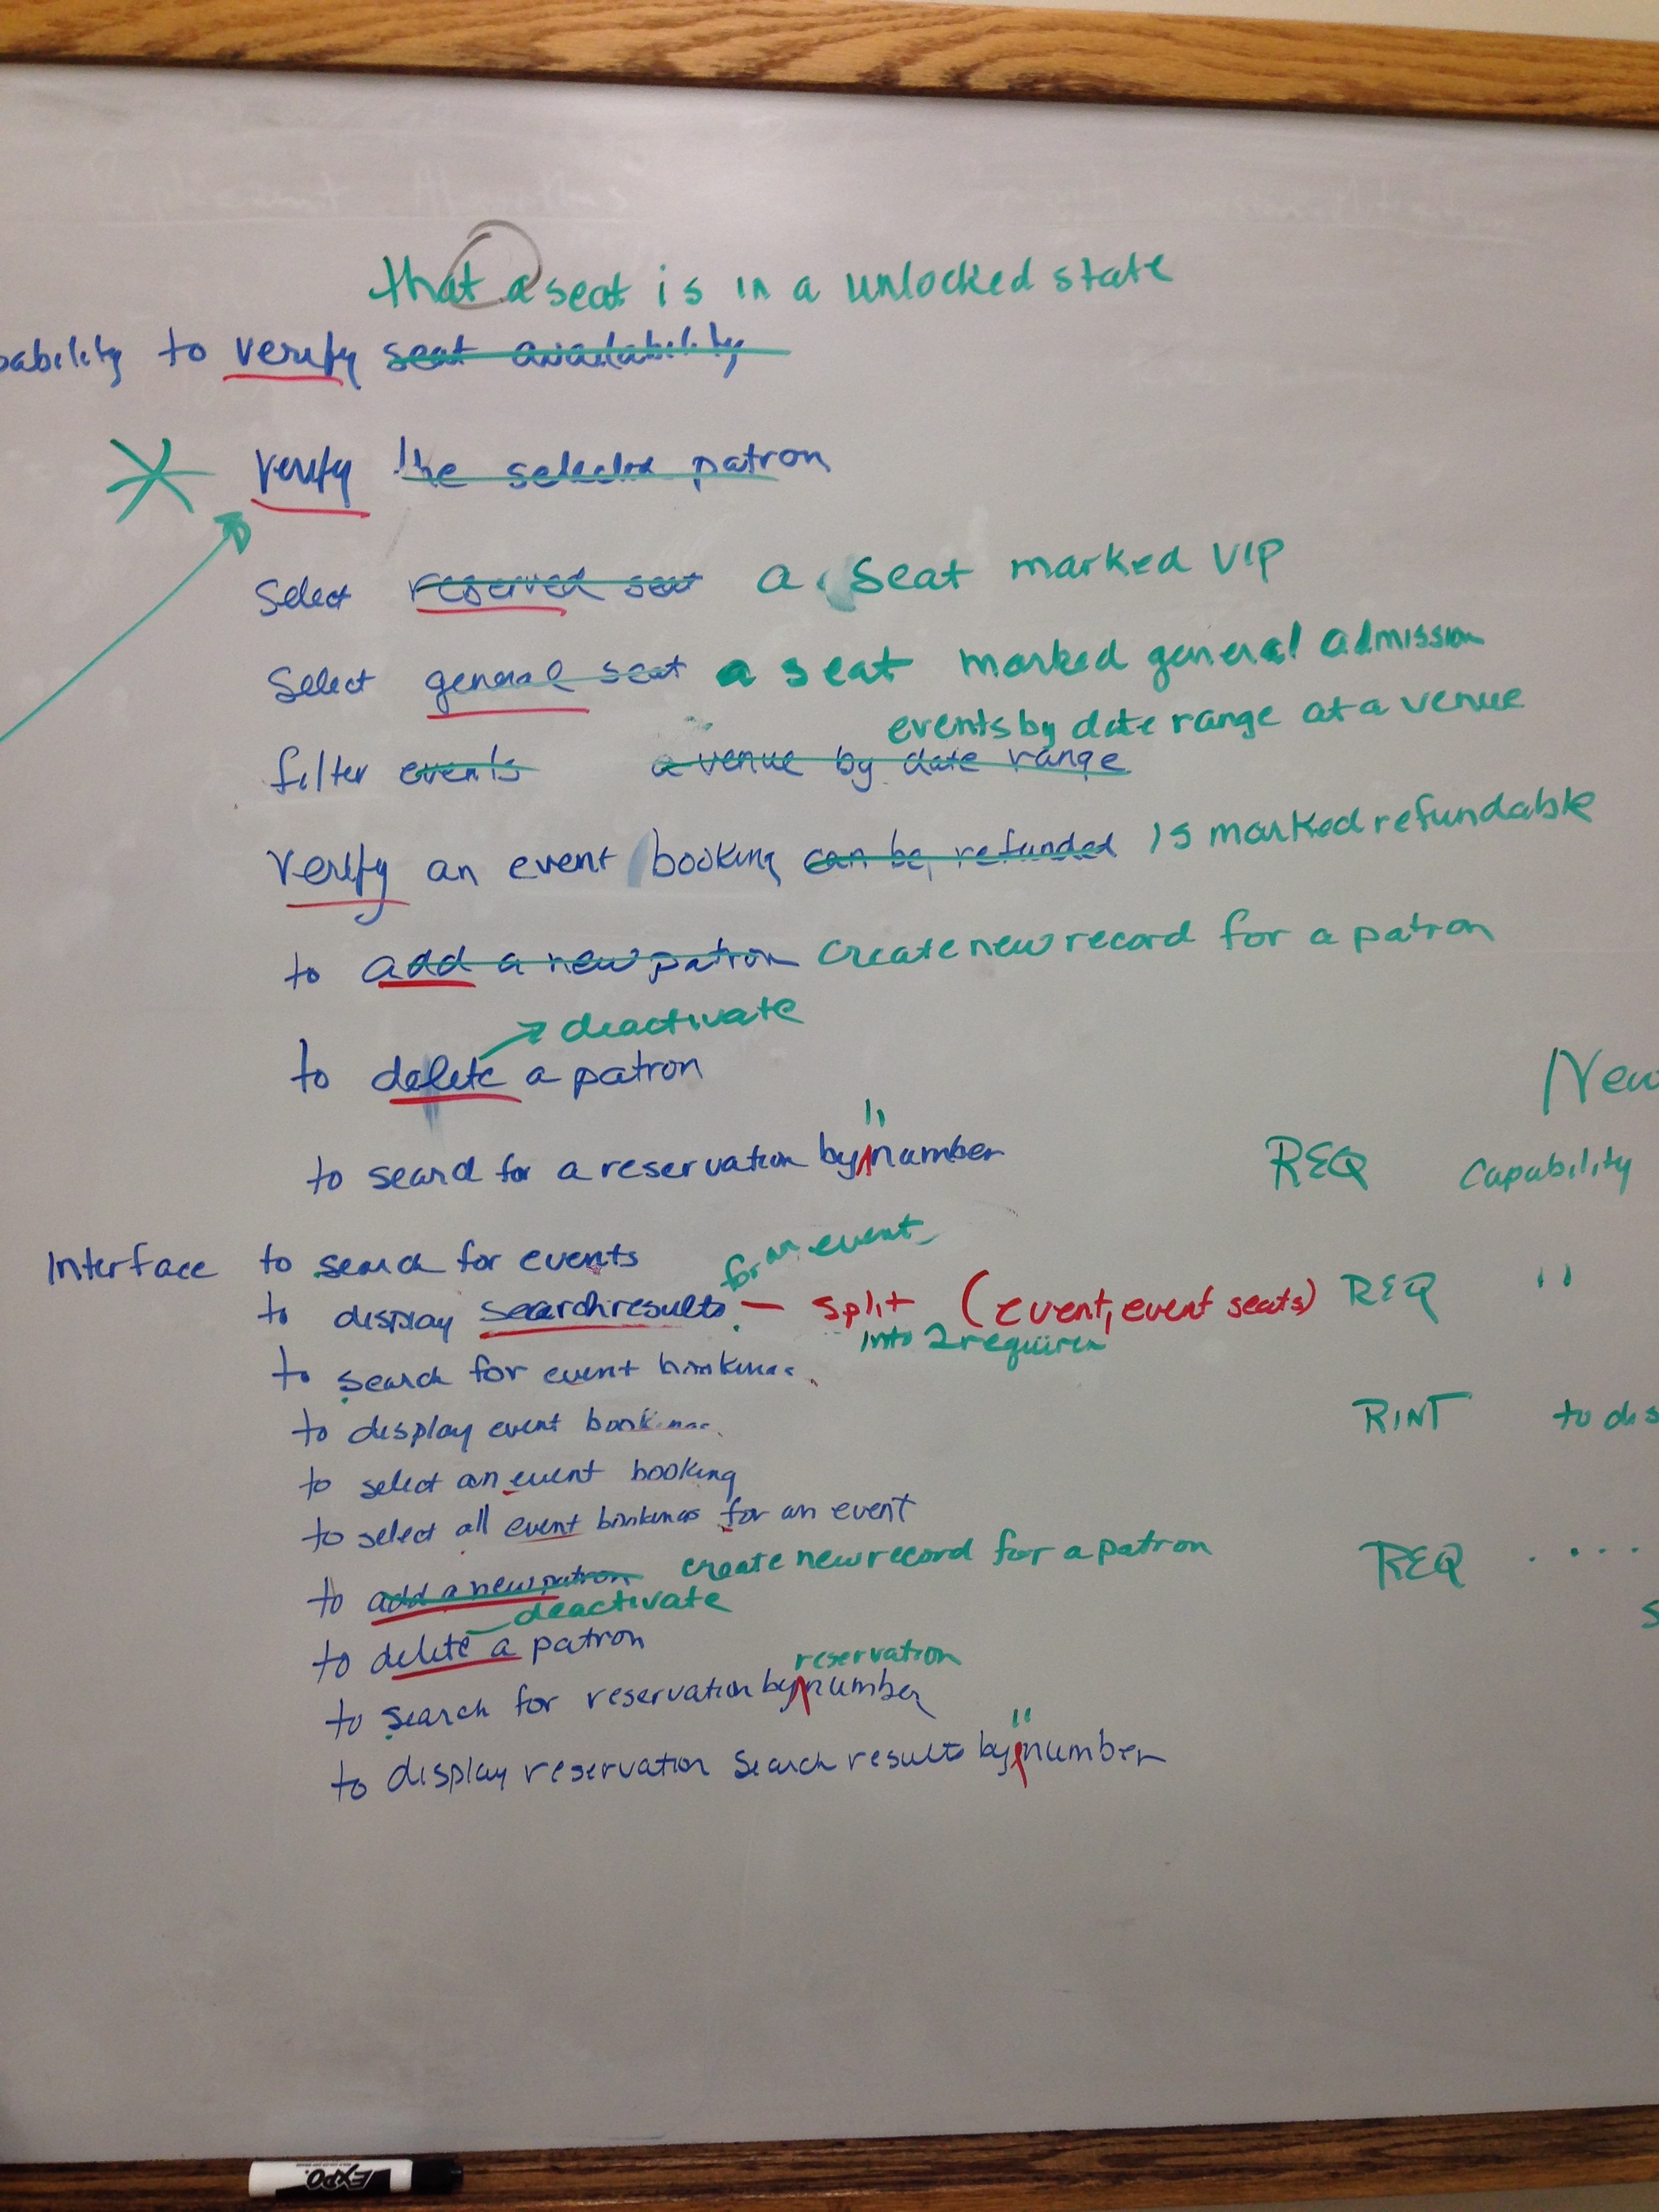 that a seat is in a unlocked state
pability to verify seat availability
verify the selected patron
Select reserved seat a seat marked VIP
Select general seat a seat marked general admission
events by date range at a venue
filter events a venue by date range
Verify an event booking can be refunded is marked refundable
to add a new patron create new record for a patron
deactivate
to delete a patron
New
"
to search for a reservation by number
REQ Capability
for an event
Interface to search for events
to display search results — split (event, event seats)
REQ "
into 2 requirem
to search for event bookings
to display event bookings
RINT to dis
to select an event booking
to select all event bookings for an event
to add a new patron create new record for a patron
REQ ....
deactivate
s
to delete a patron
reservation
to search for reservation by number
"
to display reservation search results by number
EXPO